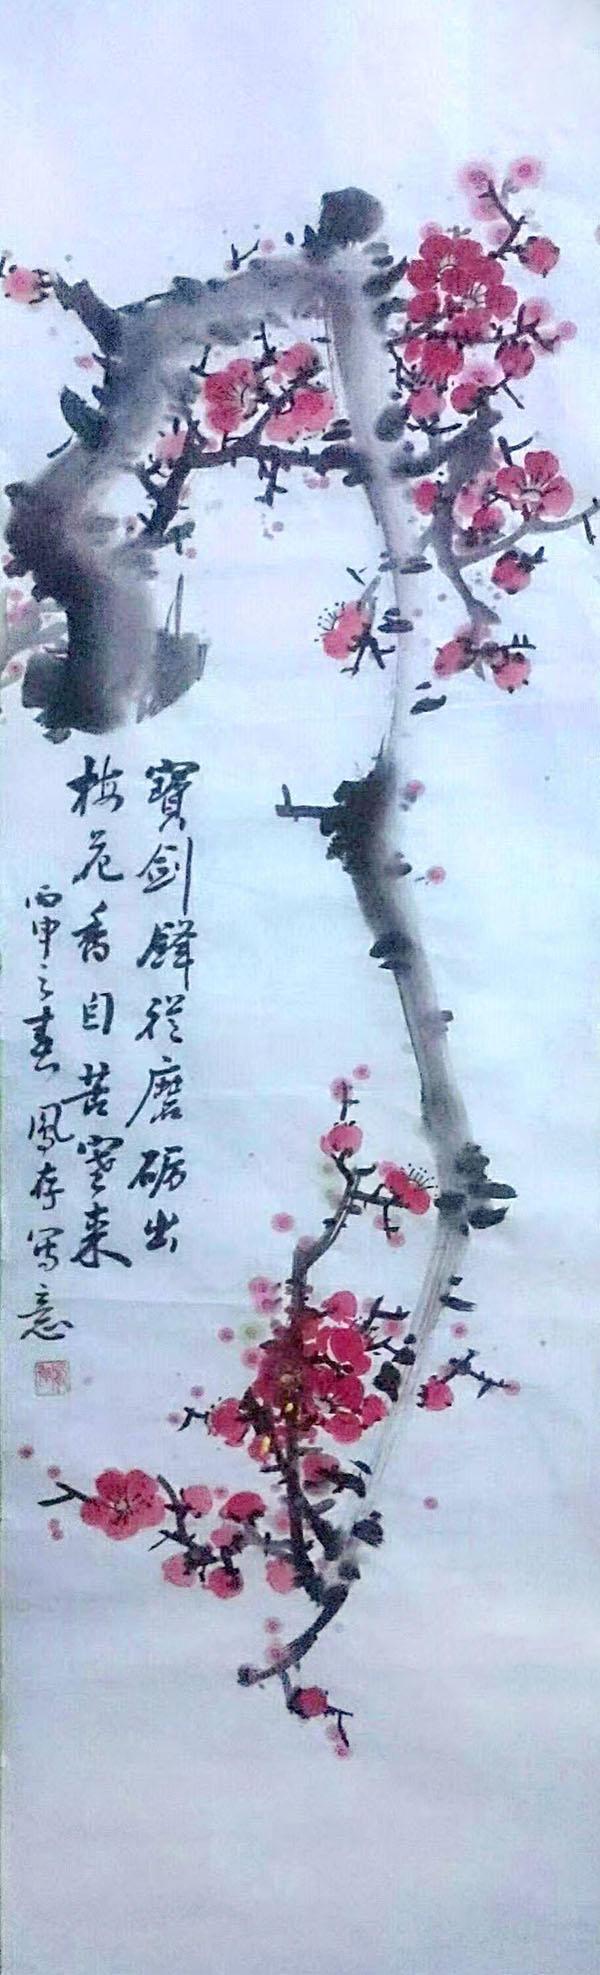 寶劍鋒從磨砺出
梅花香自苦寒来
丙申之春鳳存写意